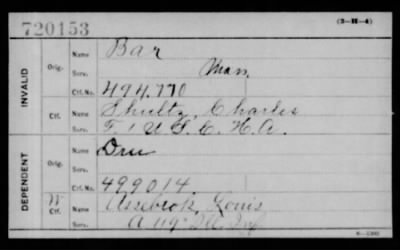 720153 (3—H—4)
INVALID Orig. Name Bar
Serv. Mam
Ctf. No. 494.770
Ctf. Name Shultz, Charles
Serv. F. 1 U.S.C. H.A.
DEPENDENT Orig. Name Dru
Serv.
Ctf. No. 499014.
W Ctf. Name Assebrok, Louis
Serv. A 119" Ill. Inf
6—1302